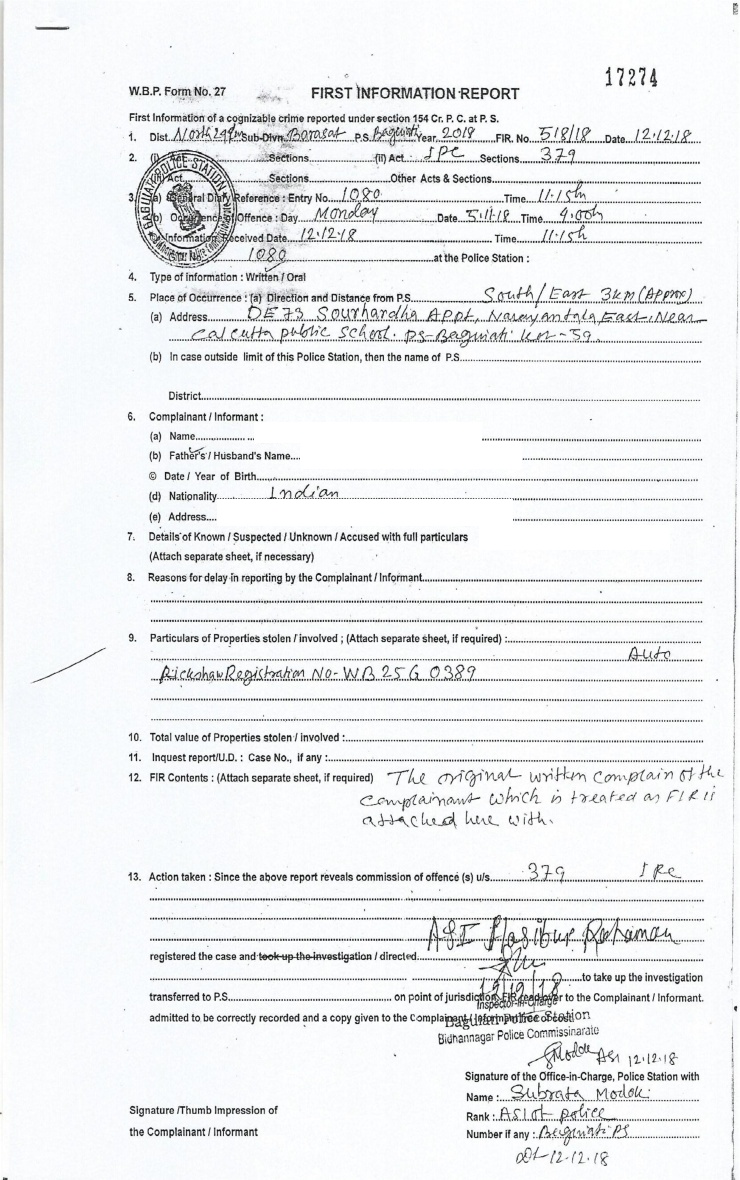 17274
W.B.P. Form No. 27 FIRST INFORMATION REPORT
First Information of a cognizable crime reported under section 154 Cr. P. C. at P. S.
1. Dist. North 24 Sub-Divn. Barasat P.S. Baguiati Year. 2018 FIR. No. 518/18 Date 12.12.18
2. (I) Act Sections (II) Act. IPC Sections 379
(III) Act Sections Other Acts & Sections
3. (a) General Diary Reference : Entry No. 1080 Time 11.15h
(b) Occurrence of Offence : Day Monday Date 5.11.18 Time 9.00h
Information Received Date 12.12.18 Time 11.15h
1080 at the Police Station :
4. Type of Information : Written / Oral
5. Place of Occurrence : (a) Direction and Distance from P.S. South/East 3km (Approx)
(a) Address DE 73 Sourhardha Appt, Narayantala East, Near
Calcutta public School. PS-Baguiati Kol-59.
(b) In case outside limit of this Police Station, then the name of P.S.
District
6. Complainant / Informant :
(a) Name
(b) Father's / Husband's Name
© Date / Year of Birth
(d) Nationality Indian
(e) Address
7. Details of Known / Suspected / Unknown / Accused with full particulars
(Attach separate sheet, if necessary)
8. Reasons for delay in reporting by the Complainant / Informant
9. Particulars of Properties stolen / involved ; (Attach separate sheet, if required) :
Auto
Rickshaw Registration No- WB 25 G 0389
10. Total value of Properties stolen / involved :
11. Inquest report/U.D. : Case No., if any :
12. FIR Contents : (Attach separate sheet, if required) The original written complain of the
complainant which is treated as FIR is
attached here with.
13. Action taken : Since the above report reveals commission of offence (s) u/s. 379 IPC
ASI Hasibur Rahaman
registered the case and took up the investigation / directed
to take up the investigation
transferred to P.S. on point of jurisdiction, FIR read over to the Complainant / Informant.
Inspector-in-Charge
admitted to correctly recorded and a copy given to the Complainant / Informant free of cost
Baguiati Police Station
Bidhannagar Police Commissinarate
SModok ASI 12.12.18
Signature of the Office-in-Charge, Police Station with
Name : Subrata Modok
Signature /Thumb Impression of
Rank : ASI of police
the Complainant / Informant
Number if any : Baguiati PS
Dt-12.12.18